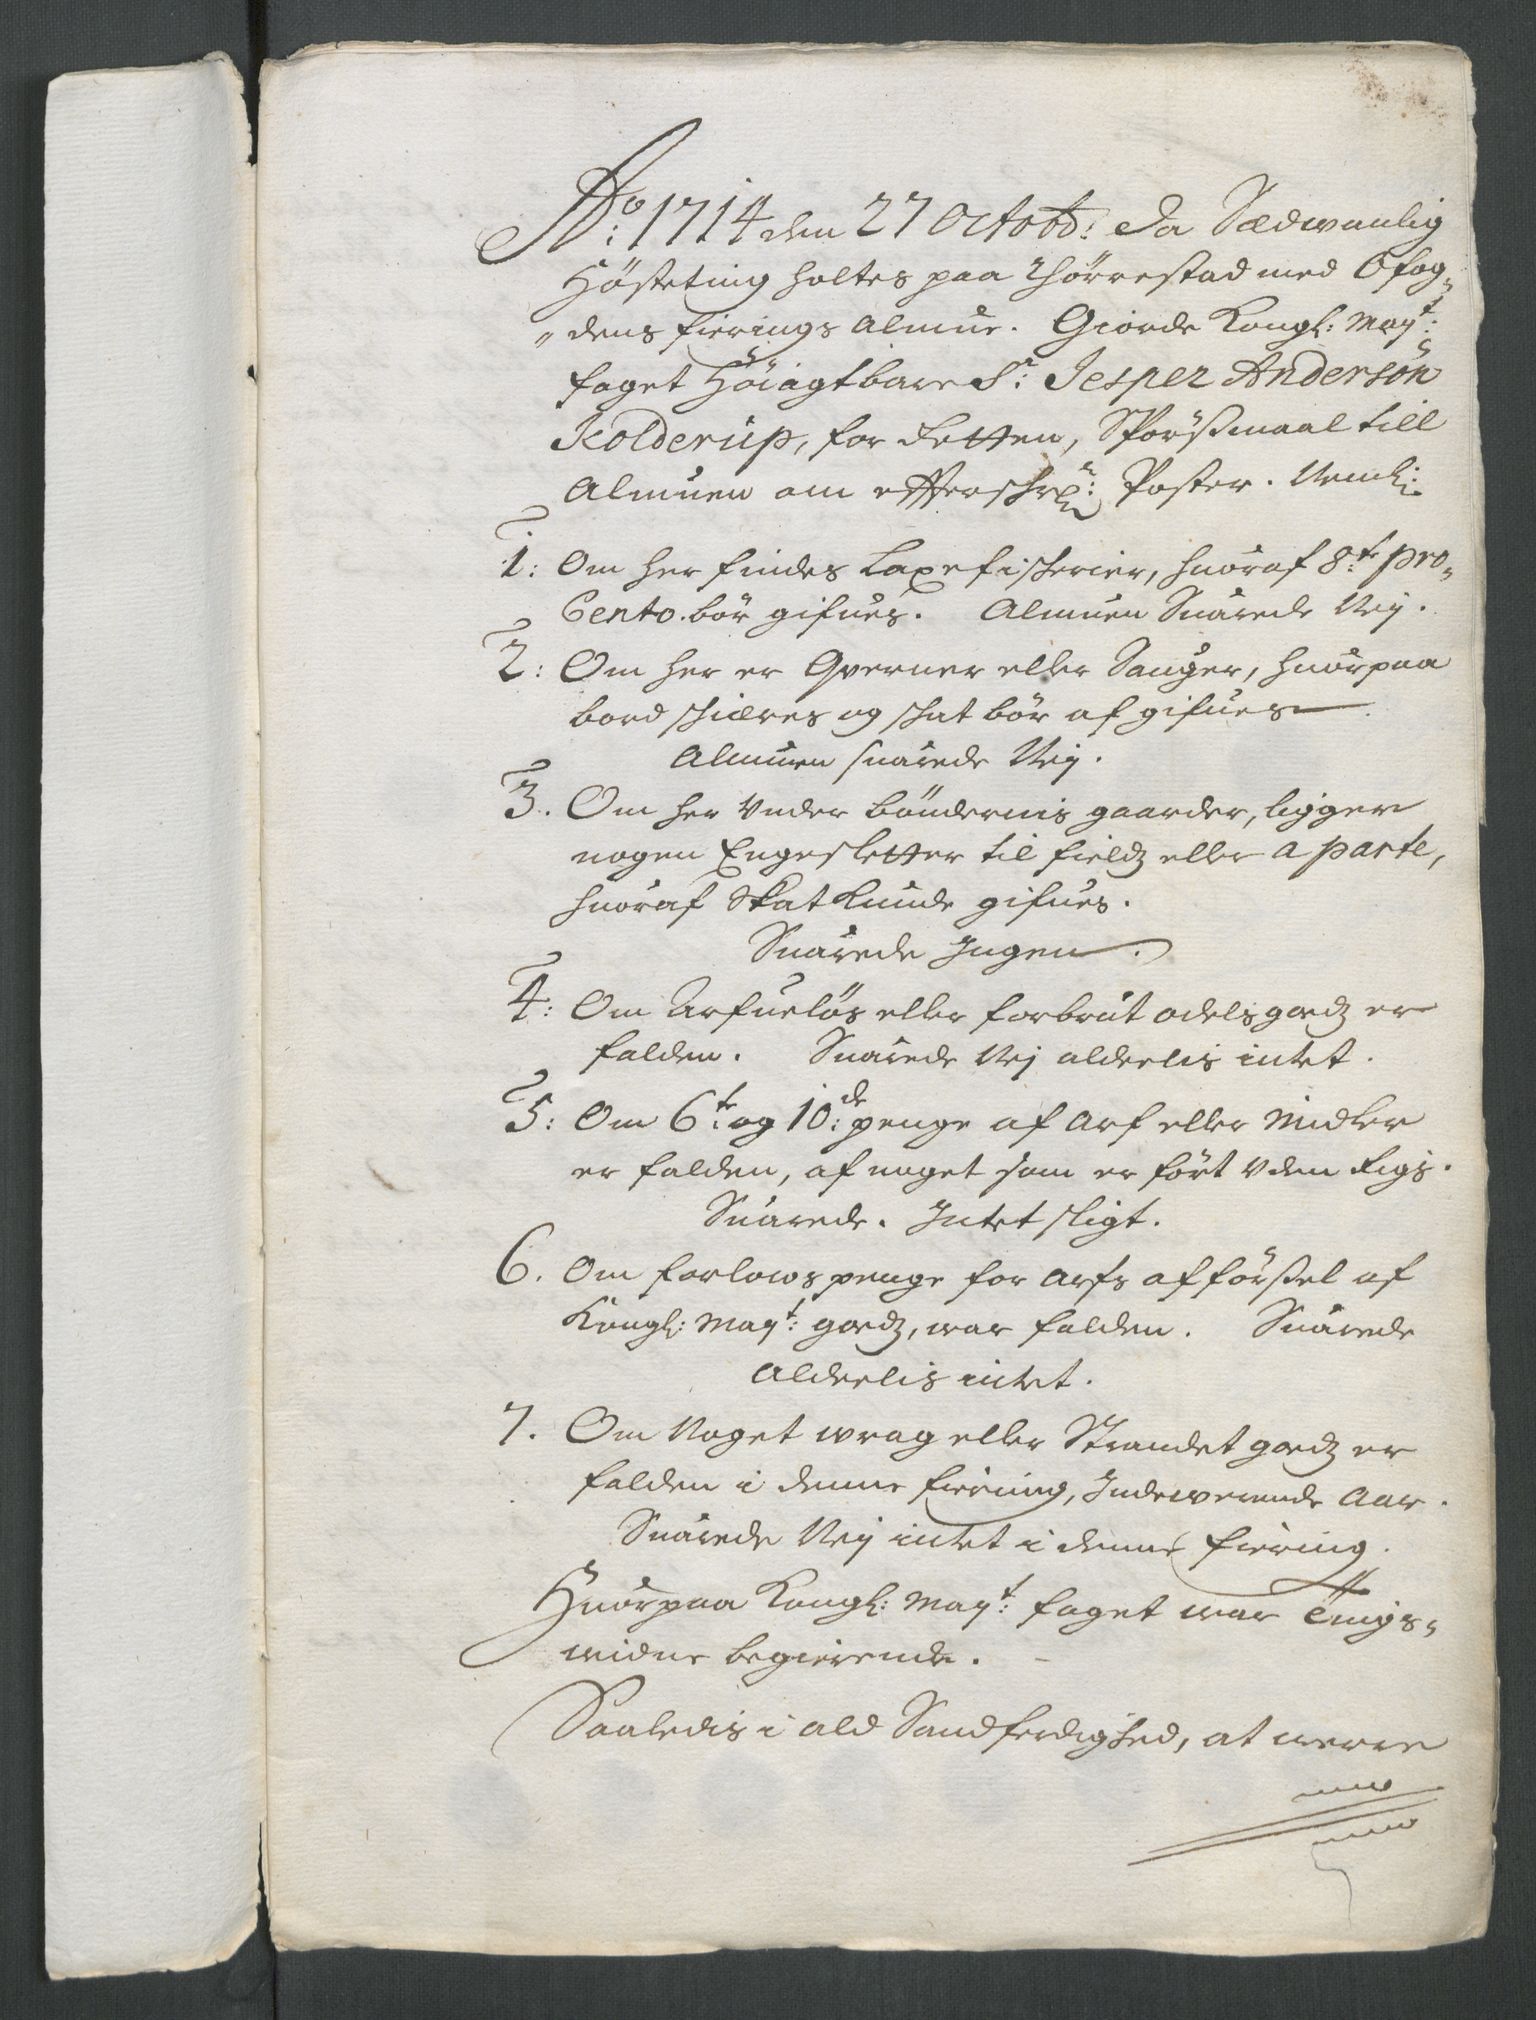 Ao: 1714 den 27 Octobr: Da Sædwanlig
Hösteting holtes paa Thörrestad med Ofog-
„dens fierings Almue. Giorde Kongl: Mayt:
foget Höiagtbare Sr: Jesper Andersön
Kolderup, for Retten, Spörßmaal till
Almuen om effterschrne: Poster. Neml:
1: Om her findes Laxefischerier, huoraf 8te pro
Cento bör gifues. Almuen Suarede Nej.
2: Om her er Qverner eller Sauger, huorpaa
bord schiæres og schat bör af gifues
Almuen suarede Nej.
3. Om her Vnder böndernis gaarder, ligger
nogen Engesletter til fieldz eller a parte,
huoraf Skat kunde gifues.
Suarede Ingen.
4: Om Arfuelös eller forbrut odelsgodz er
falden. Suarede Nej alderlis intet.
5: Om 6te og 10de: penge af Arf eller Midler
er falden, af noget som er fört Vden Rigs.
Suarede. Intet sligt.
6. Om forlows penge for Arfs afförßel af
Kongl: Mayt: godz, war falden. Suarede
Alderlis intet.
7. Om Noget wrag eller Strandet godz er
falden i denne fiering, Indewerende Aar.
Suarede Nej intet i denne fiering.
Huorpaa Kongl: Mayt: foget war Tings-
widne begierende.
Saaledis i ald Sandferdighed, at werre